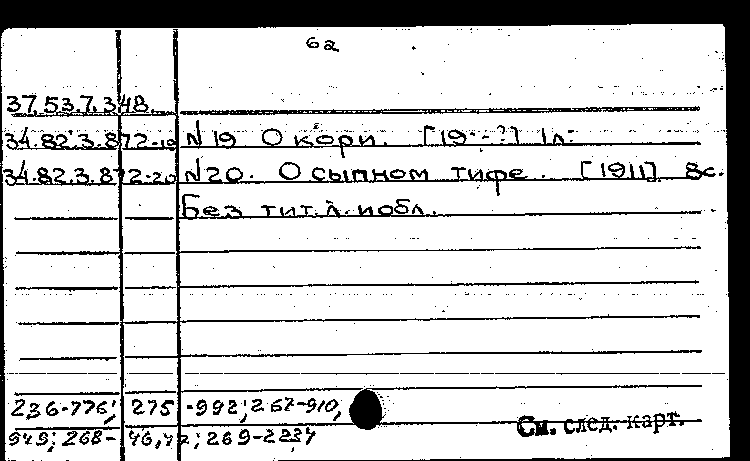 6а
37.53.7.348.
34.82.3.872-19 N19 О кори. [19--?] 1л.
34.82.3.872-20 N20. О сыпном тифе. [1911] 8с.
Без тит.л. и обл.
236-776; 275-992; 267-910,
949; 268-46,47; 269-2237
См. след. карт.